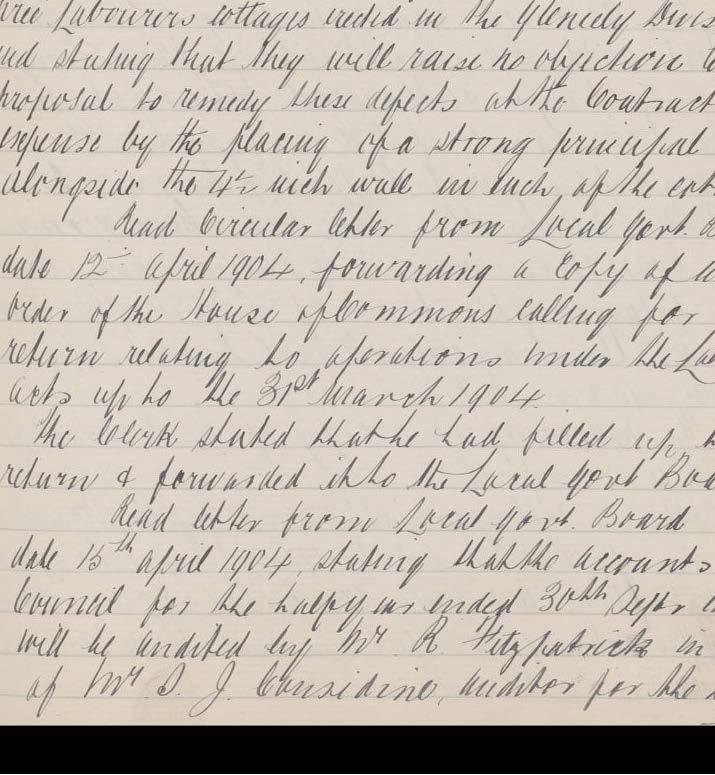 Labourers cottages erected in the Glenealy
stating that they will raise no objection
proposal to remedy these defects at the Contract
expense by the placing of a strong principal
alongside the 4½ inch wall in each of the cot
Read Circular letter from Local Govt.
date 12th April 1904, forwarding a Copy of
order of the House of Commons calling for
return relating to operations under the La
acts up to the 31st March 1904.
The Clerk stated that he had filled up
return & forwarded it to the Local Govt Boa
Read letter from Local Govt. Board
date 15th April 1904, stating that the accounts
Council for the half year ended 30th Septr
will be audited by Mr. R. Fitzpatrick in
of Mr J. Considine, auditor for the